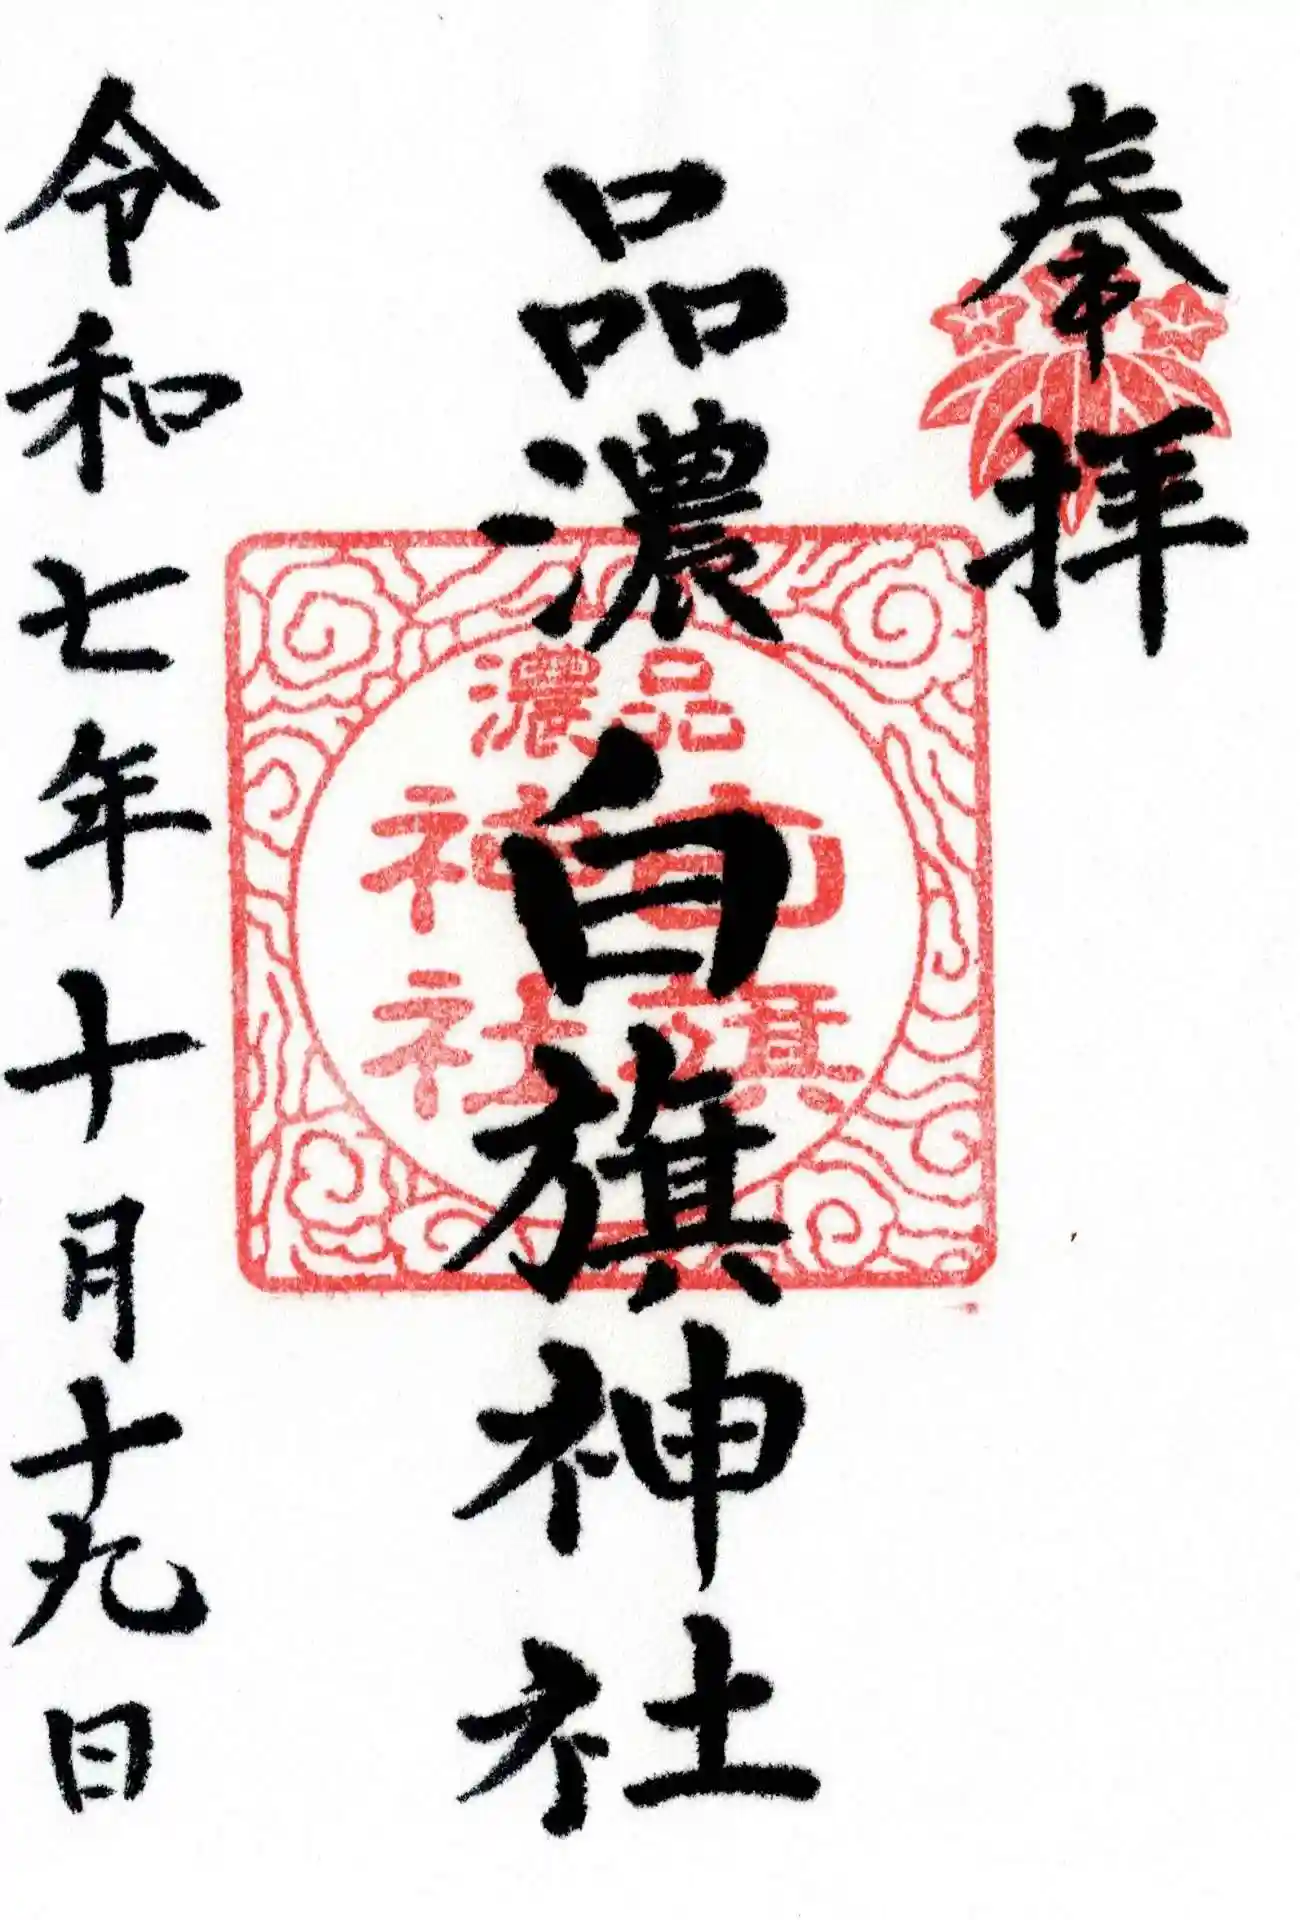 奉拝
品濃白旗神社
品濃
白旗
神社
令和七年十月十九日